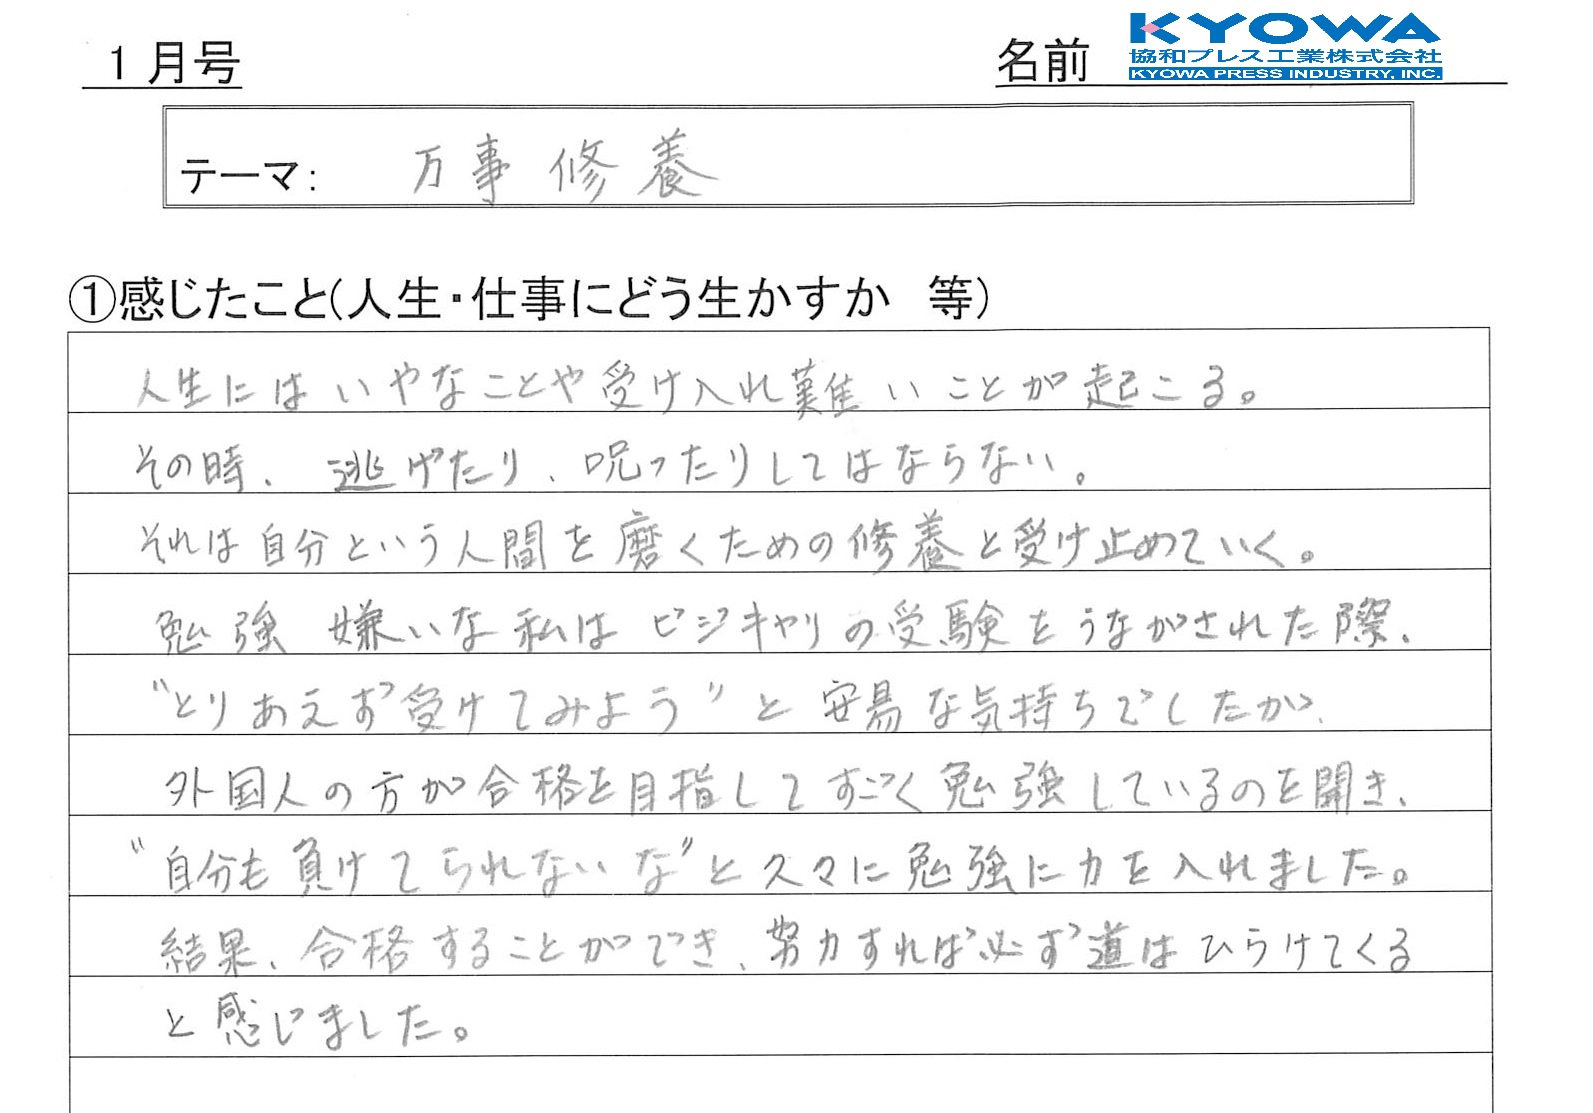 1月号
名前
KYOWA
協和プレス工業株式会社
KYOWA PRESS INDUSTRY, INC.
テーマ： 万事修養
①感じたこと(人生・仕事にどう生かすか 等)
人生にはいやなことや受け入れ難いことが起こる。
その時、逃げたり、呪ったりしてはならない。
それは自分という人間を磨くための修養と受け止めていく。
勉強嫌いな私はビジキャリの受験をうながされた際、
"とりあえず受けてみよう"と安易な気持ちでしたが、
外国人の方が合格を目指してすごく勉強しているのを聞き、
"自分も負けてられないな"と久々に勉強に力を入れました。
結果、合格することができ、努力すれば必ず道はひらけてくる
と感じました。